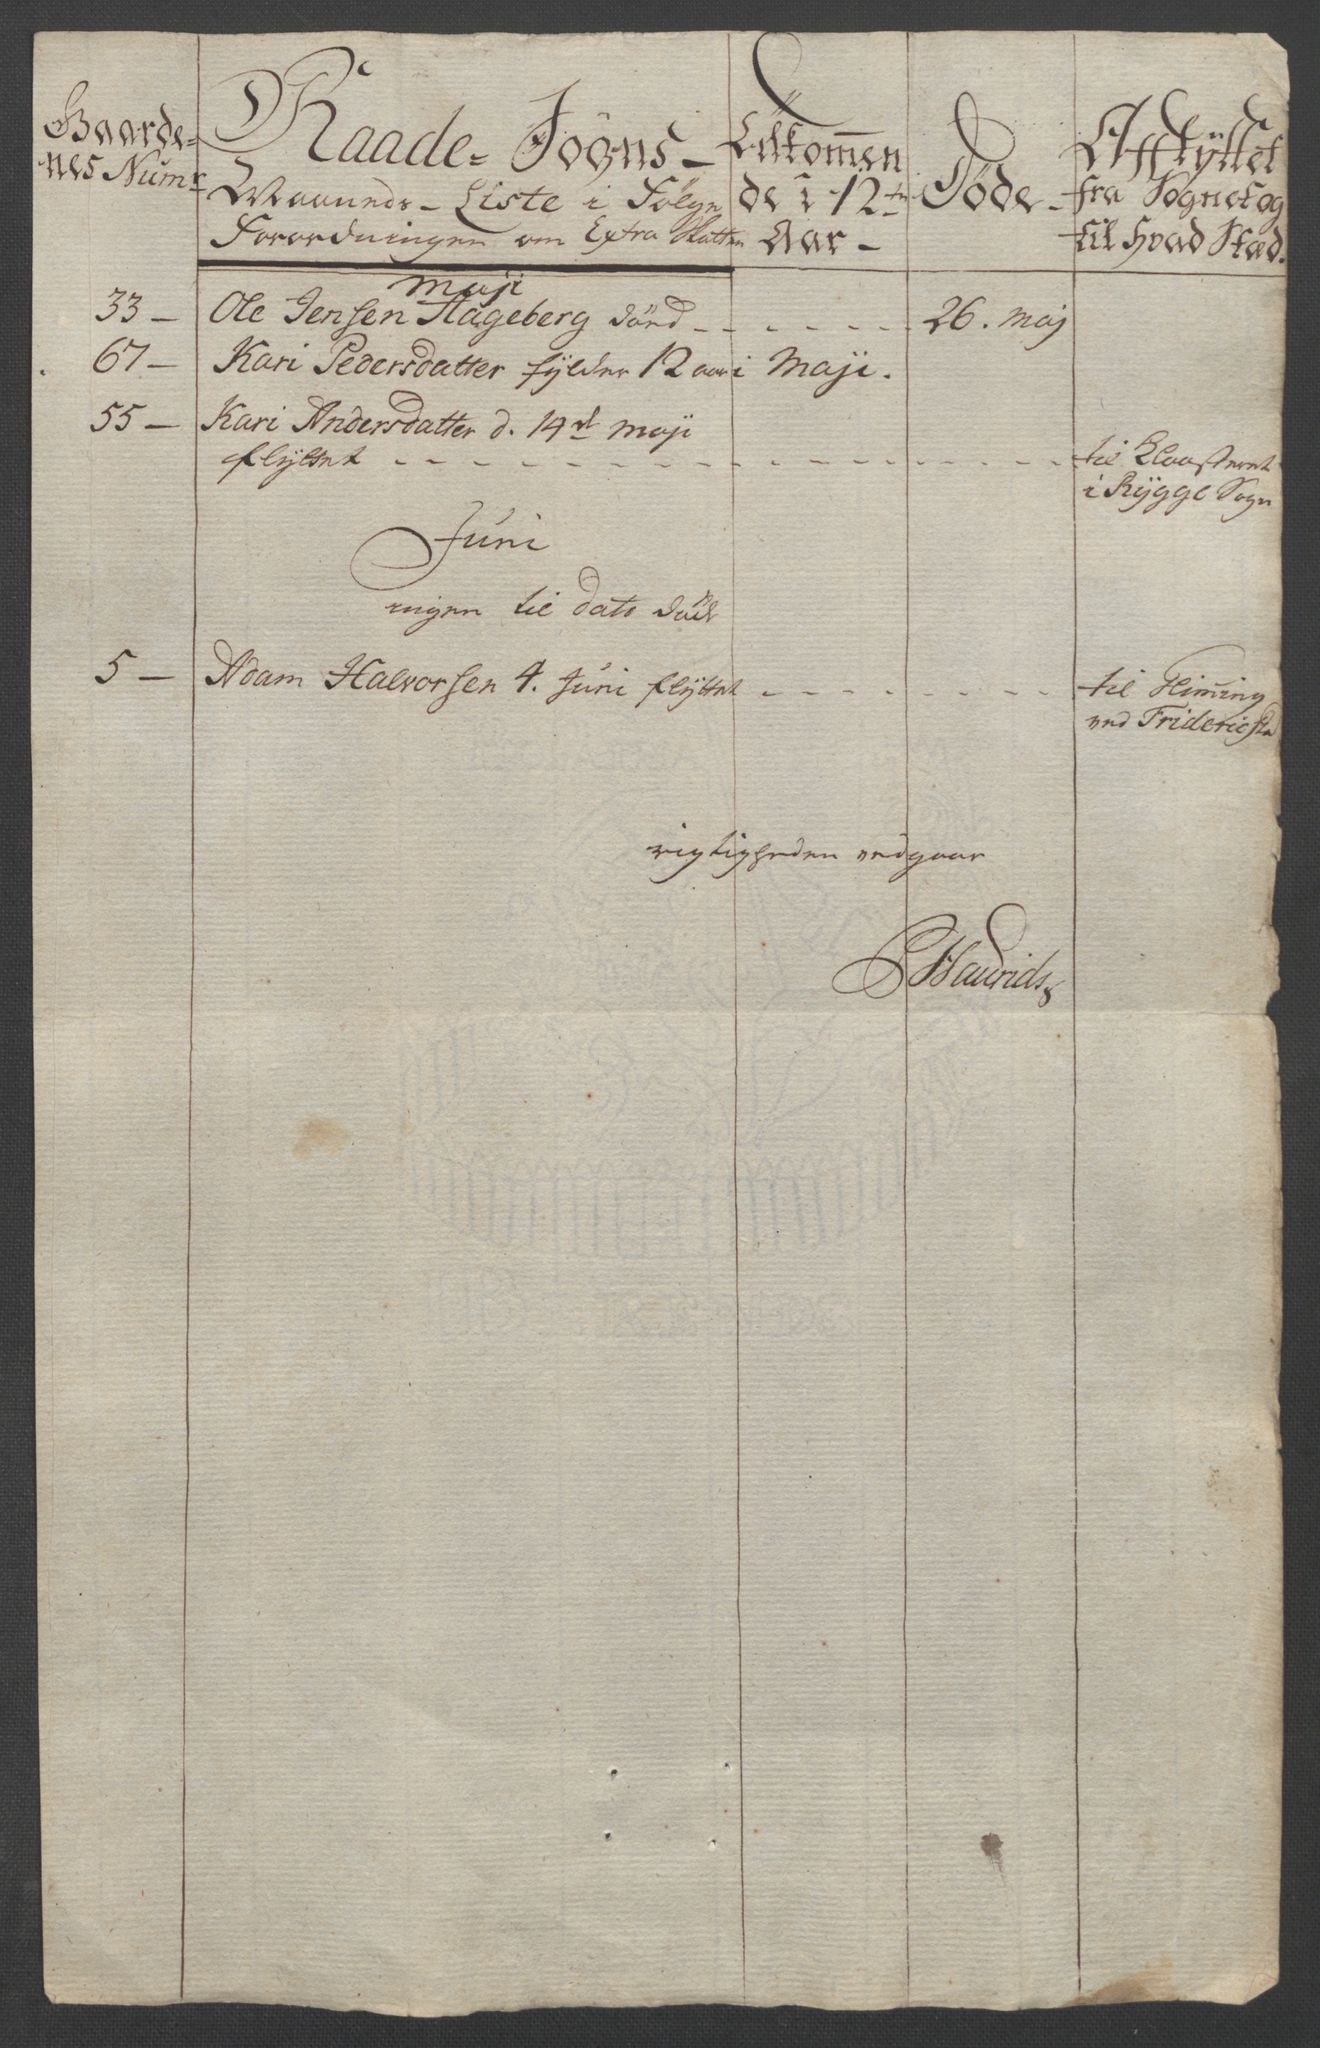 Gaarde-
nes Numr
Raade- Sogns-
Maaneds- Liste i Følge
Forordningen om Extra Skatten
Tilkommen
de i 12te
Aar-
Døde-
Afflÿttet
fra Sognet og
til hvad Stæd.
Maji
33 - Ole Jensen Hageberg død - - - - - - 26. Maj
67 - Kari Pedersdatter fylder 12 aar i Maji.
55 - Kari Andersdatter d. 14d Maji
flÿttet - - - - - - - - - - - - - - - - til Kloosteret
i Rÿgge Sogn
Juni
ingen til Dato død
5 - Adam Halvorsen 4. Juni flÿttet - - - - - - - - til
ved Fridericsta
rigtigheden vedgaar